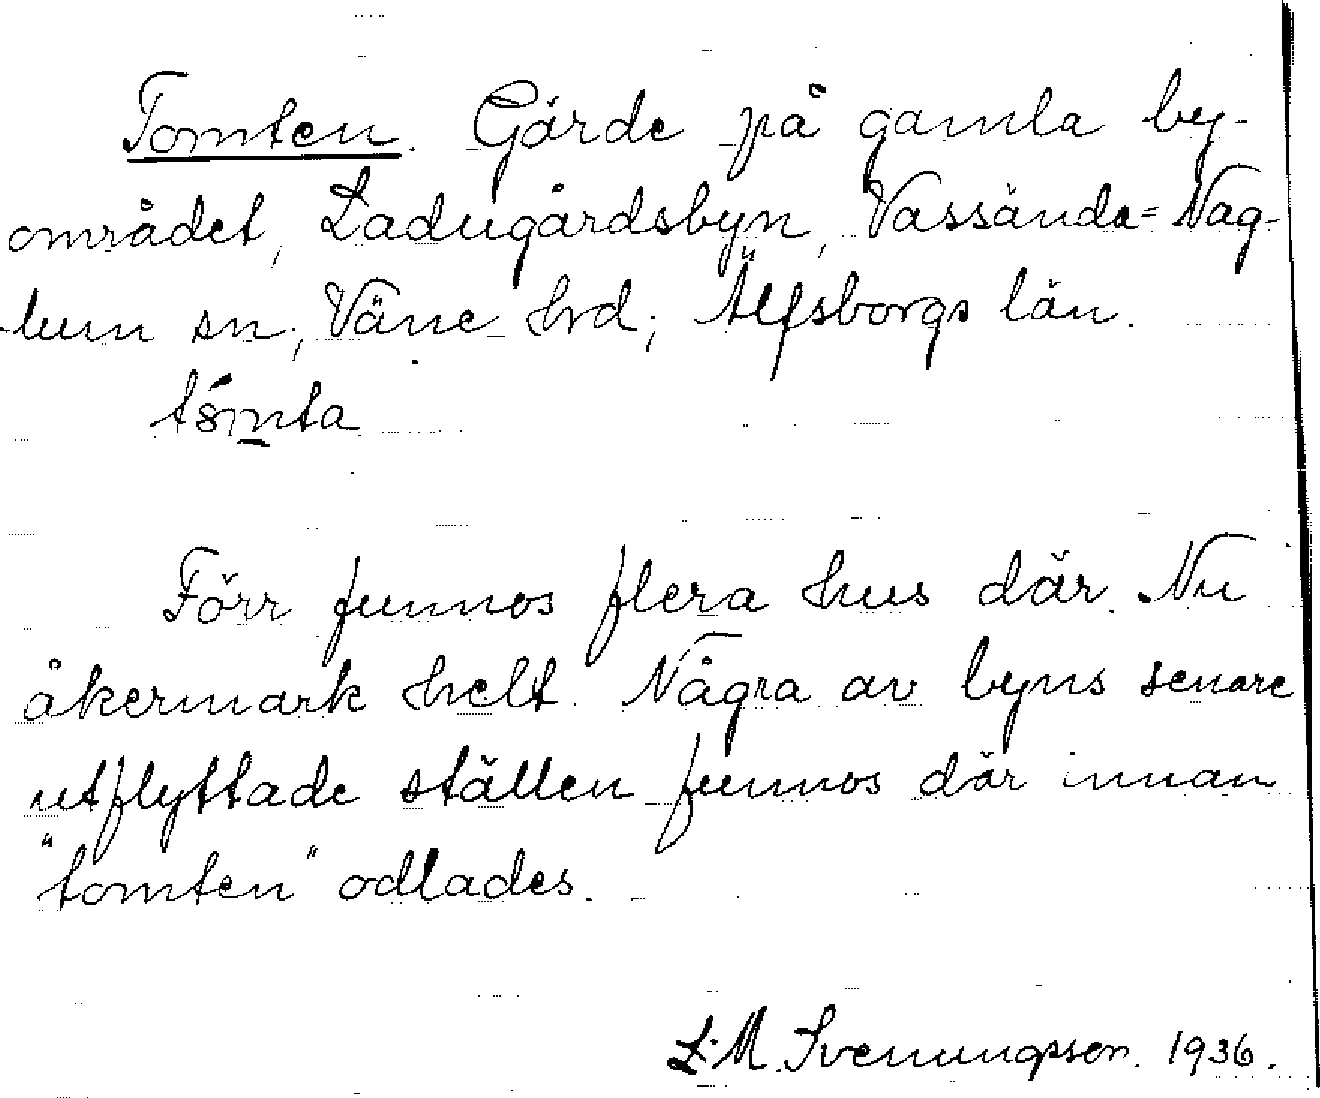 Tomten. Gärde på gamla by-
området, Ladugårdsbyn, Vassända=Nag-
lum sn, Väne hrd, Älfsborgs län.
Förr funnos flera hus där. Nu
åkermark helt. Några av byns senare
utflyttade ställen funnos där innan
"tomten" odlades.
L.M. Svenungsson. 1936.